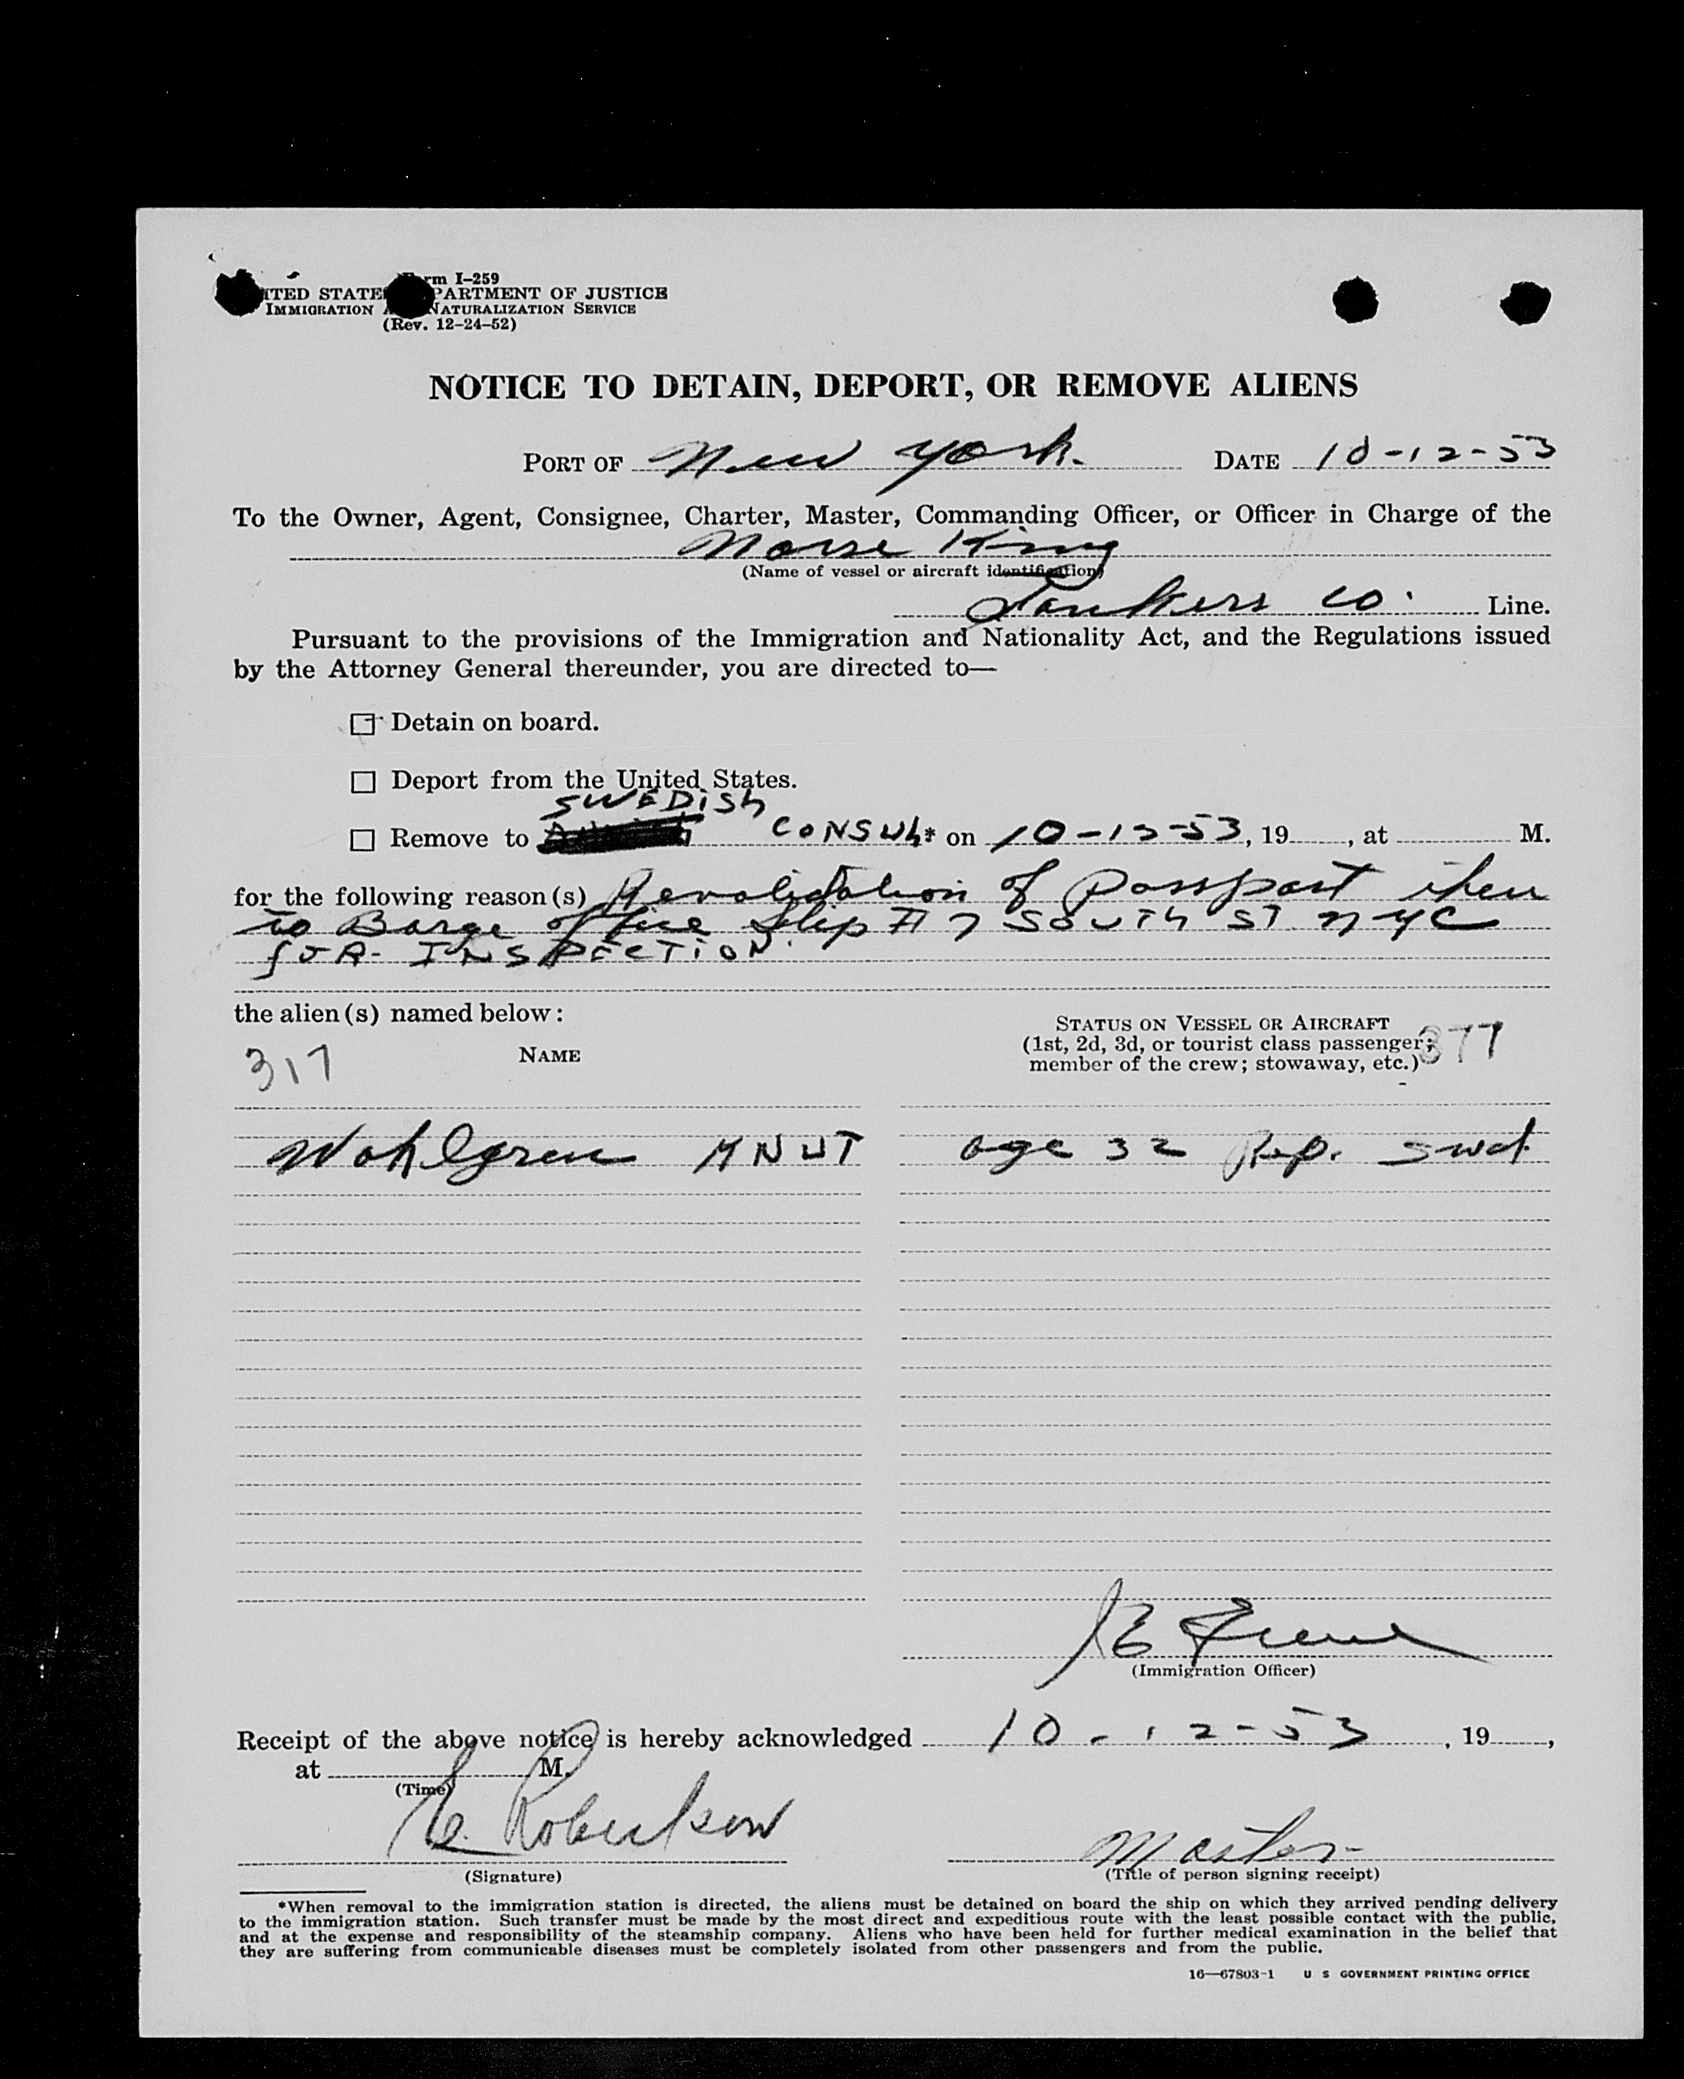 Form I-259
UNITED STATES DEPARTMENT OF JUSTICE
IMMIGRATION AND NATURALIZATION SERVICE
(Rev. 12-24-52)
NOTICE TO DETAIN, DEPORT, OR REMOVE ALIENS
PORT OF New York. DATE 10-12-53
To the Owner, Agent, Consignee, Charter, Master, Commanding Officer, or Officer in Charge of the
Norse King
(Name of vessel or aircraft identification)
Tankers Co. Line.
Pursuant to the provisions of the Immigration and Nationality Act, and the Regulations issued
by the Attorney General thereunder, you are directed to—
Detain on board.
Deport from the United States.
SWEDISh
Remove to CONSUL* on 10-12-53, 19, at M.
for the following reason(s) Revalidation of Passport then
to Barge office Slip # 7 South ST NYC
for INSPECTION.
the alien(s) named below:
STATUS ON VESSEL OR AIRCRAFT
(1st, 2d, 3d, or tourist class passenger;
member of the crew; stowaway, etc.)
317 NAME 377
Wahlgren KNUT age 32 Rep. Swd.
(Immigration Officer)
Receipt of the above notice is hereby acknowledged 10-12-53, 19,
at M.
(Time)
E. Robertson Master
(Signature) (Title of person signing receipt)
*When removal to the immigration station is directed, the aliens must be detained on board the ship on which they arrived pending delivery
to the immigration station. Such transfer must be made by the most direct and expeditious route with the least possible contact with the public,
and at the expense and responsibility of the steamship company. Aliens who have been held for further medical examination in the belief that
they are suffering from communicable diseases must be completely isolated from other passengers and from the public.
16—67803-1 U S GOVERNMENT PRINTING OFFICE